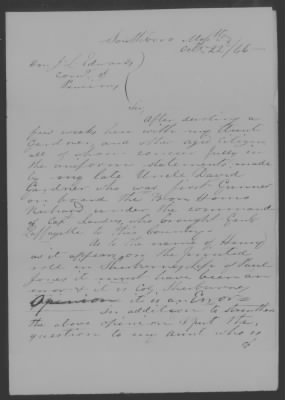 Southboro Mass
Oct. 22/66
Hon J. L. Edwards
Comr of
Pensions
Sir
After devoting a
few weeks here with my Aunt
Gardner, and other aged Citizens
all of whom concur fully in
the uniform statements made
by my late Uncle David
Gardner who was first Gunner
on board the Bon Homme
Richard under the command
of Capt Landers, who brought Genl
Laffayette to this Country.
As to the name of Henry
as it appears on the printed
roll in Sherburnes life of Paul
Jones it must have been an
error & it is Col Sherburnes
Opinion it is an Error
In addition to strengthen
the above opinion I put the
question to my aunt who is